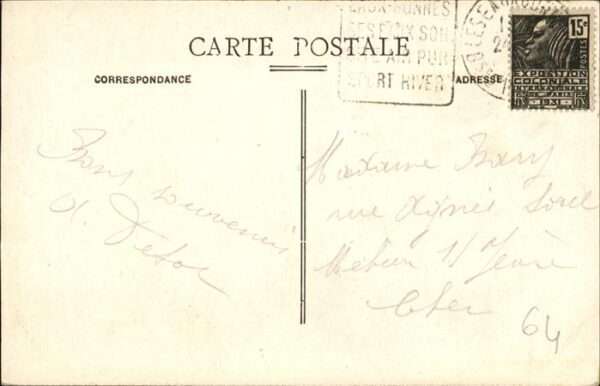 CARTE POSTALE
CORRESPONDANCE
ADRESSE
EAUX-BONNES
SES EAUX SON
SITE AIR PUR
SPORT HIVER
15c
POSTES
EXPOSITION
COLONIALE
INTERNATIONALE
PARIS 1931
Bons souvenirs
Madame
rue Agnès Sorel
Mehun s/ Yèvre
Cher
64